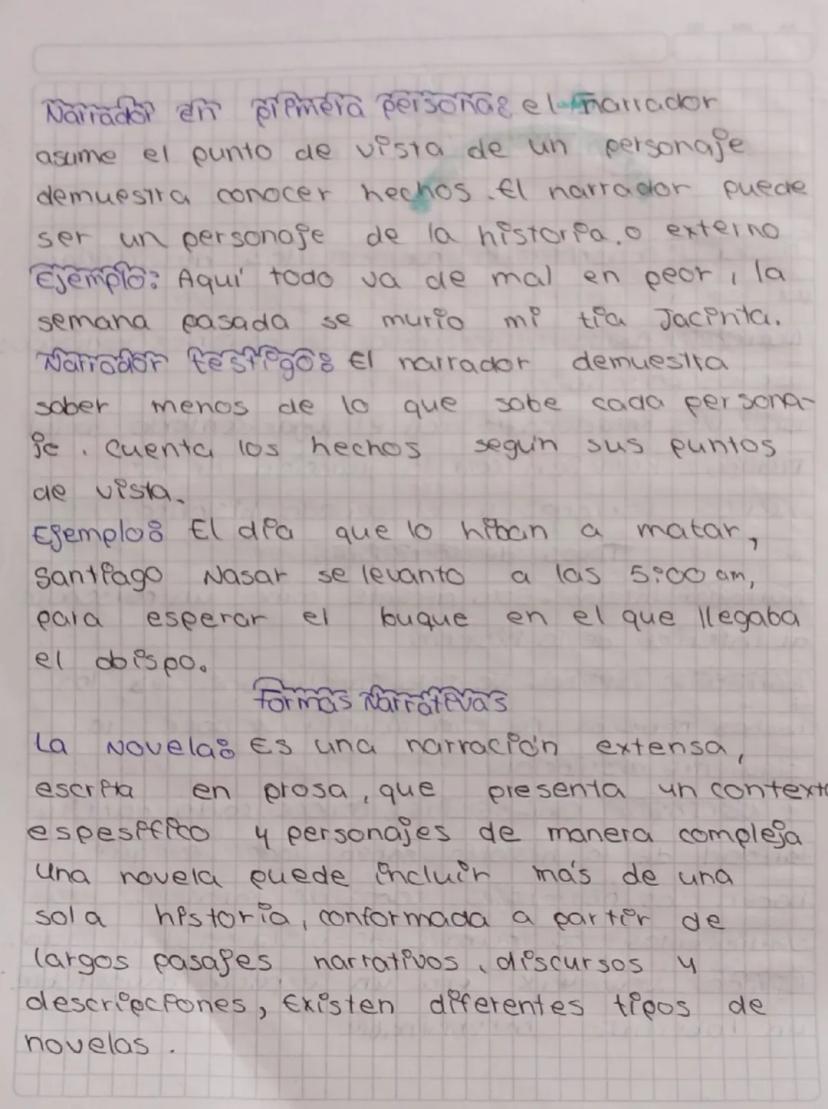 Narrador en primera persona: el narrador
asume el punto de vista de un personaje
demuestra conocer hechos. El narrador puede
ser un personaje de la historia, o externo
Ejemplo: Aquí todo va de mal en peor, la
semana pasada se murio mi tia Jacinta.
Narrador testigo: El narrador demuestra
saber menos de lo que sabe cada persona-
je. Cuenta los hechos según sus puntos
de vista.
Ejemplo: El dia que lo hiban a matar,
Santiago Nasar se levanto a las 5:00 am,
para esperar el buque en el que llegaba
el obispo.
Formas Narrativas
La Novela: Es una narración extensa,
escrita en prosa, que presenta un contexto
espesifico y personajes de manera compleja
Una novela puede incluir más de una
sola historia, conformada a partir de
largos pasajes narrativos, discursos y
descripcciones, Existen diferentes tipos de
novelas.